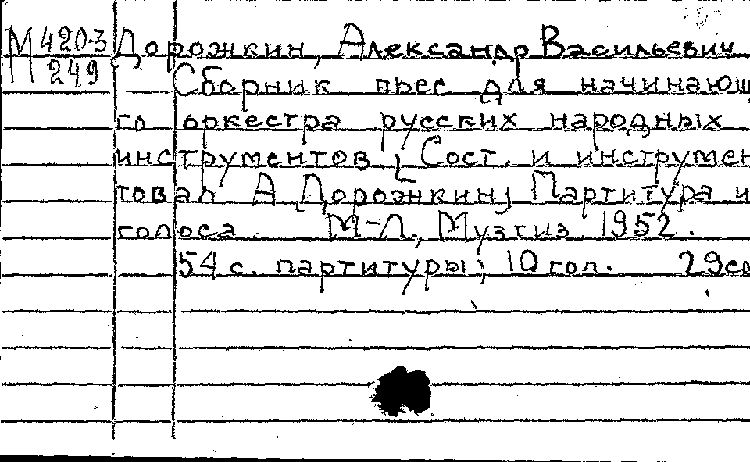 М 420-3 Дорожкин, Александр Васильевич
249 Сборник пьес для начинающ
го оркестра русских народных
инструментов [Сост. и инструмен
товал А Дорожкин] Партитура и
голоса М-Л., Музгиз 1952.
54 с. партитуры; 10 гол. 29см